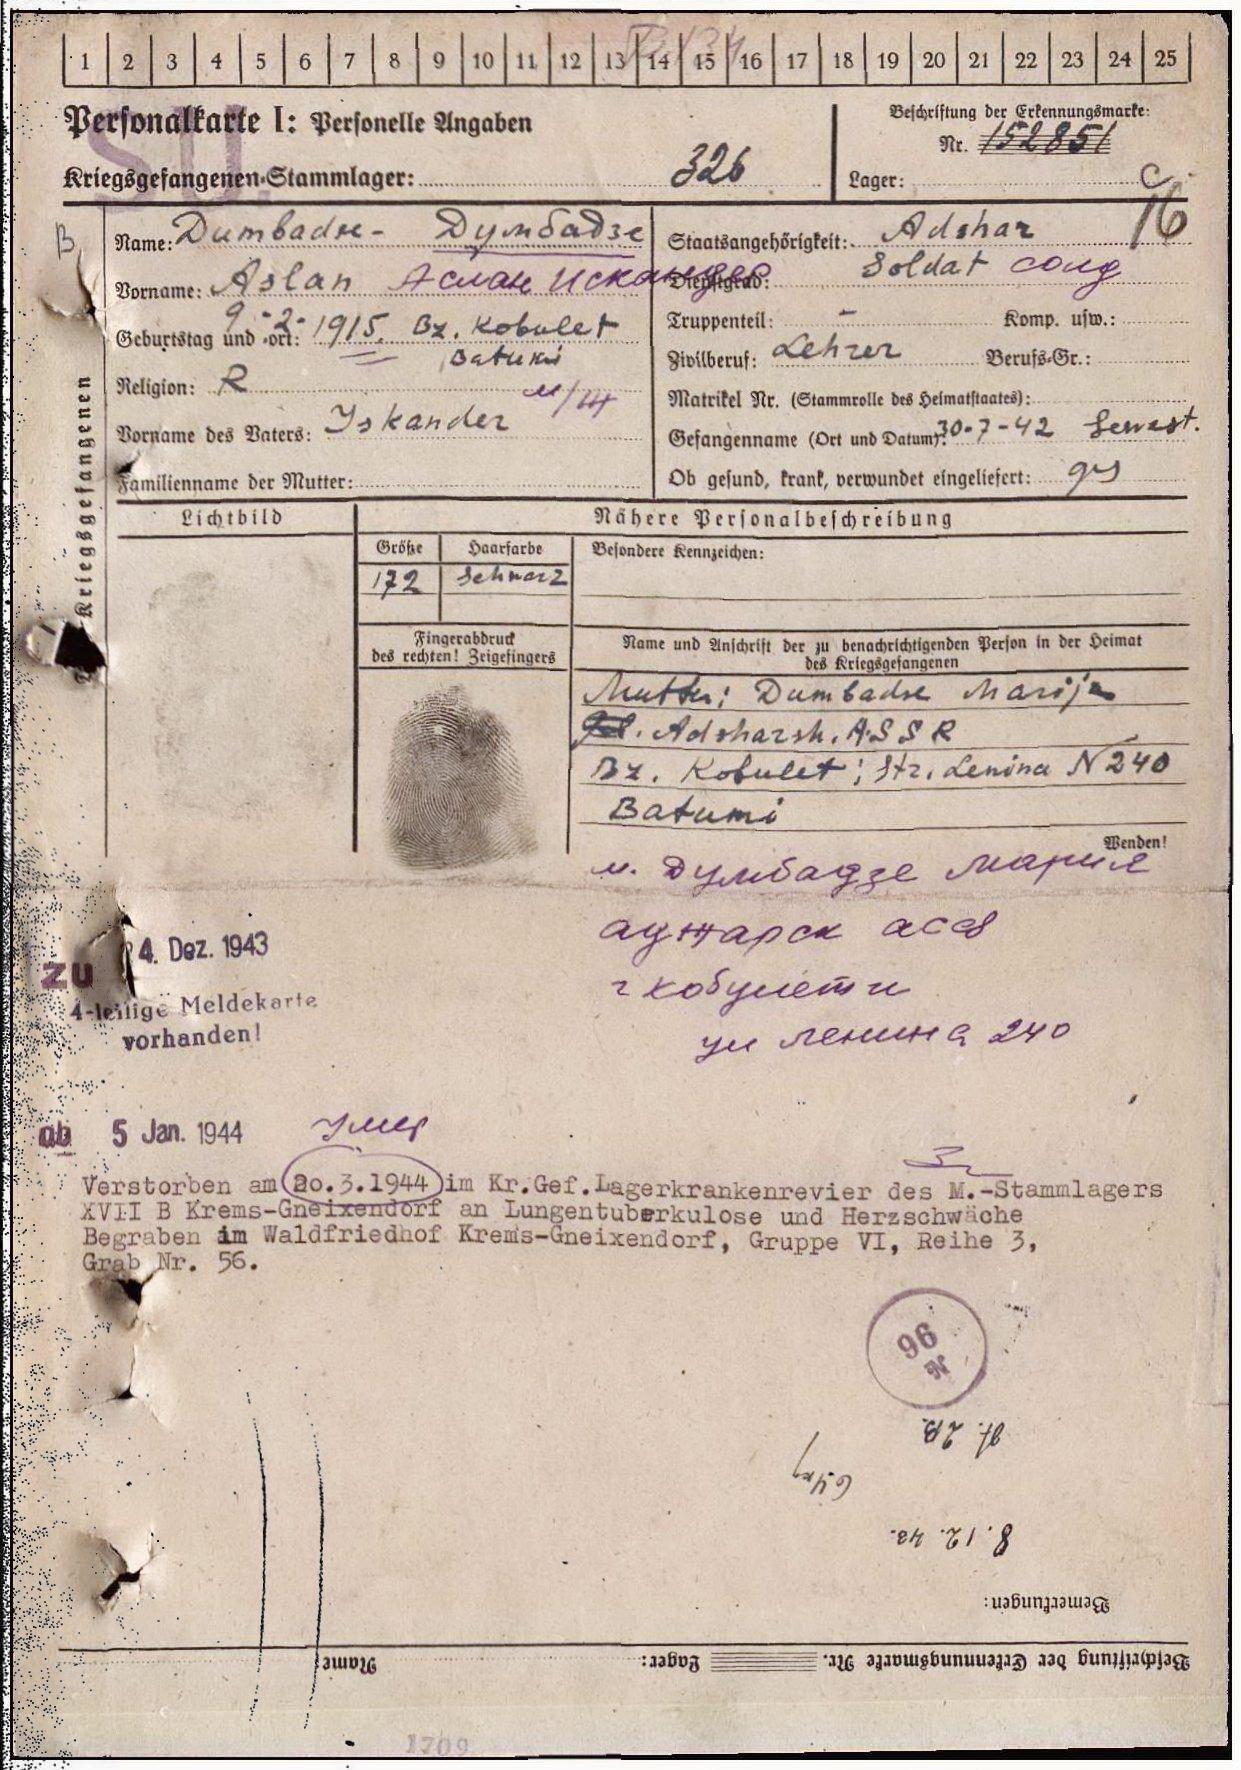 1 2 3 4 5 6 7 8 9 10 11 12 13 14 15 16 17 18 19 20 21 22 23 24 25
SU
Personalkarte I: Personelle Angaben
Kriegsgefangenen-Stammlager: 326
Beschriftung der Erkennungsmarke:
Nr. 152851
Lager:
C
16
B
Kriegsgefangenen
Name: Dumbadse - Думбадзе
Vorname: Aslan Аслан Искандер
Geburtstag und -ort: 9.-2- 1915. Bz. Kobulet
Batumi
Religion: R
Vorname des Vaters: Iskander
Familienname der Mutter:
Staatsangehörigkeit: Adshar
Dienstgrad: Soldat солд
Truppenteil: - Komp. usw.:
Zivilberuf: Lehrer Berufs-Gr.:
Matrikel Nr. (Stammrolle des Heimatstaates):
Gefangenname (Ort und Datum): 30-7-42 Sewast.
Ob gesund, krank, verwundet eingeliefert: ges
Lichtbild
Nähere Personalbeschreibung
Größe Haarfarbe Besondere Kennzeichen:
172 Schwarz
Fingerabdruck
des rechten! Zeigefingers
Name und Anschrift der zu benachrichtigenden Person in der Heimat
des Kriegsgefangenen
Mutter: Dumbadse Marija
Adsharsk. A.S S R
Bz. Kobulet; Str. Lenina N 240
Batumi
Wenden!
м. Думбадзе Мария
аджарск асс
г кобулети
ул ленина 240
zu 4. Dez. 1943
4-teilige Meldekarte
vorhanden!
ab 5 Jan. 1944
умер
Verstorben am 20.3.1944 im Kr.Gef.Lagerkrankenrevier des M.-Stammlagers
XVII B Krems-Gneixendorf an Lungentuberkulose und Herzschwäche
Begraben im Waldfriedhof Krems-Gneixendorf, Gruppe VI, Reihe 3,
Grab Nr. 56.
96
N
8.12.42.
Bemerkungen:
Beschriftung der Erkennungsmarke Nr. Lager: Name:
1709